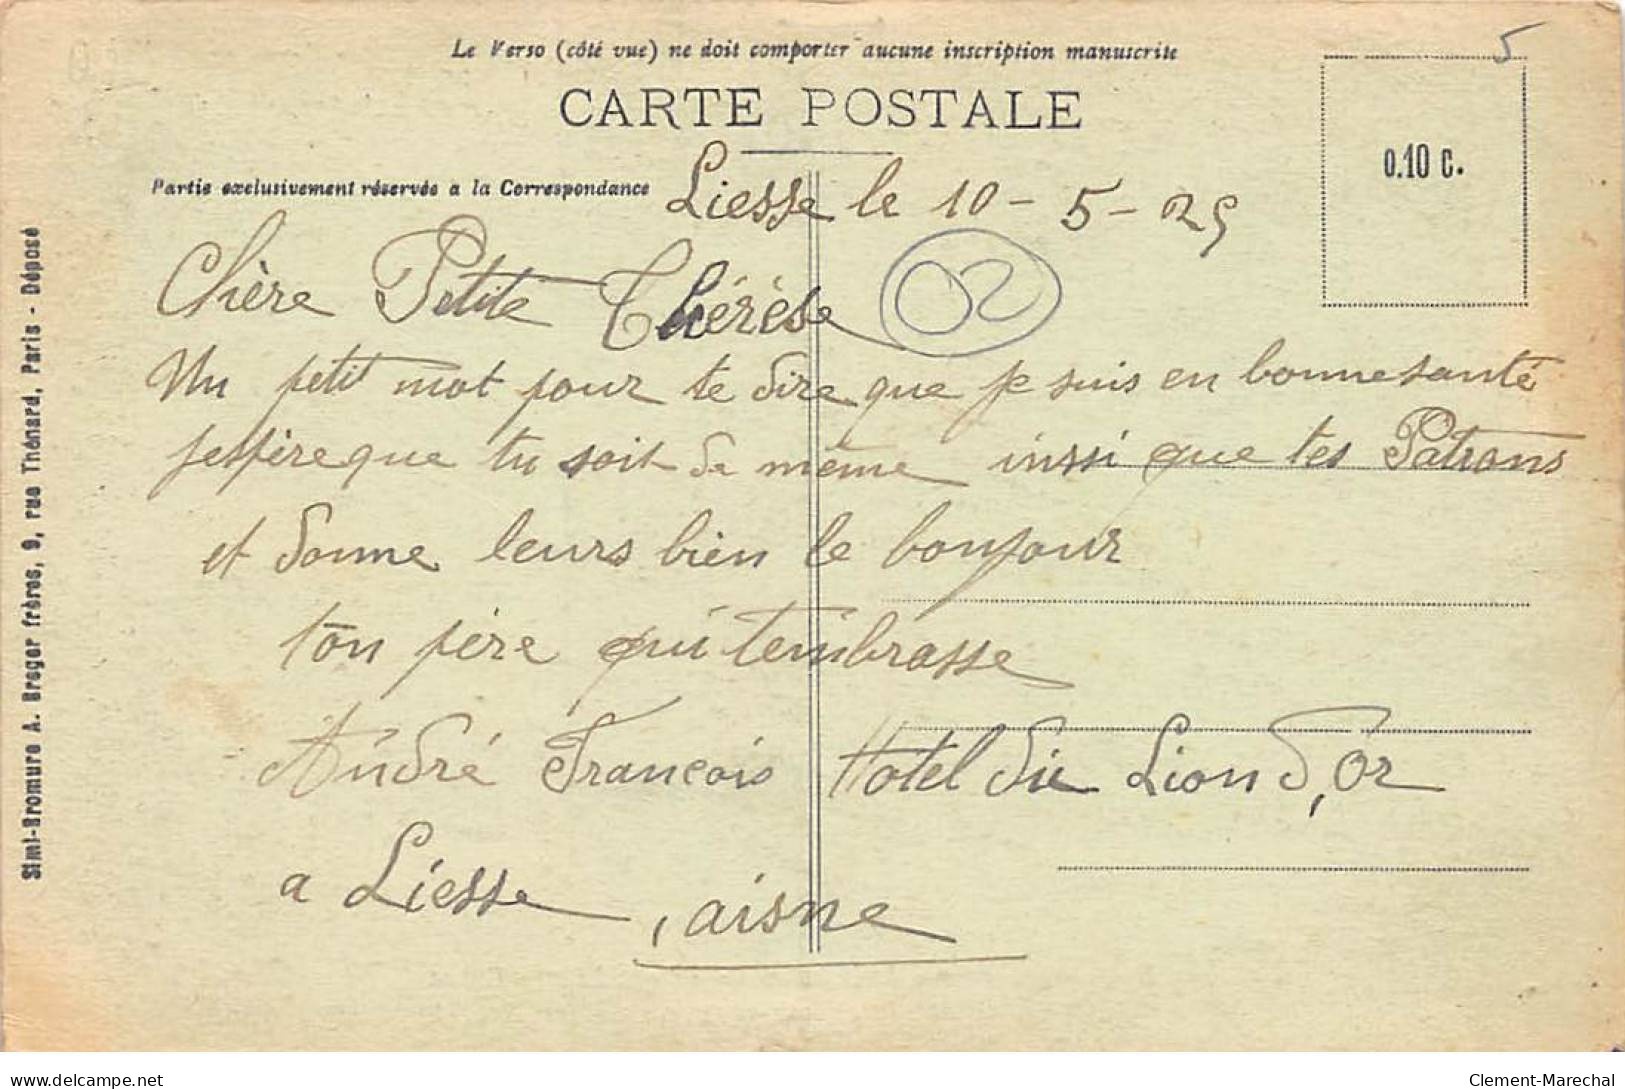 5
Le Verso (côté vue) ne doit comporter aucune inscription manuscrite
CARTE POSTALE
0.10 C.
Partie exclusivement réservée a la Correspondance
Liesse le 10 - 5 - 25
Chère Petite Thérèse
02
Un petit mot pour te dire que je suis en bonne santé
jespère que tu soit de même inssi que tes Patrons
et donne leurs bien le bonjour
ton père qui tembrasse
André Francois Hotel du Lion D,Or
a Liesse, aisne
Simi-Bromure A. Breger frères, 9, rue Thénard, Paris - Déposé
www.delcampe.net
Clement-Marechal